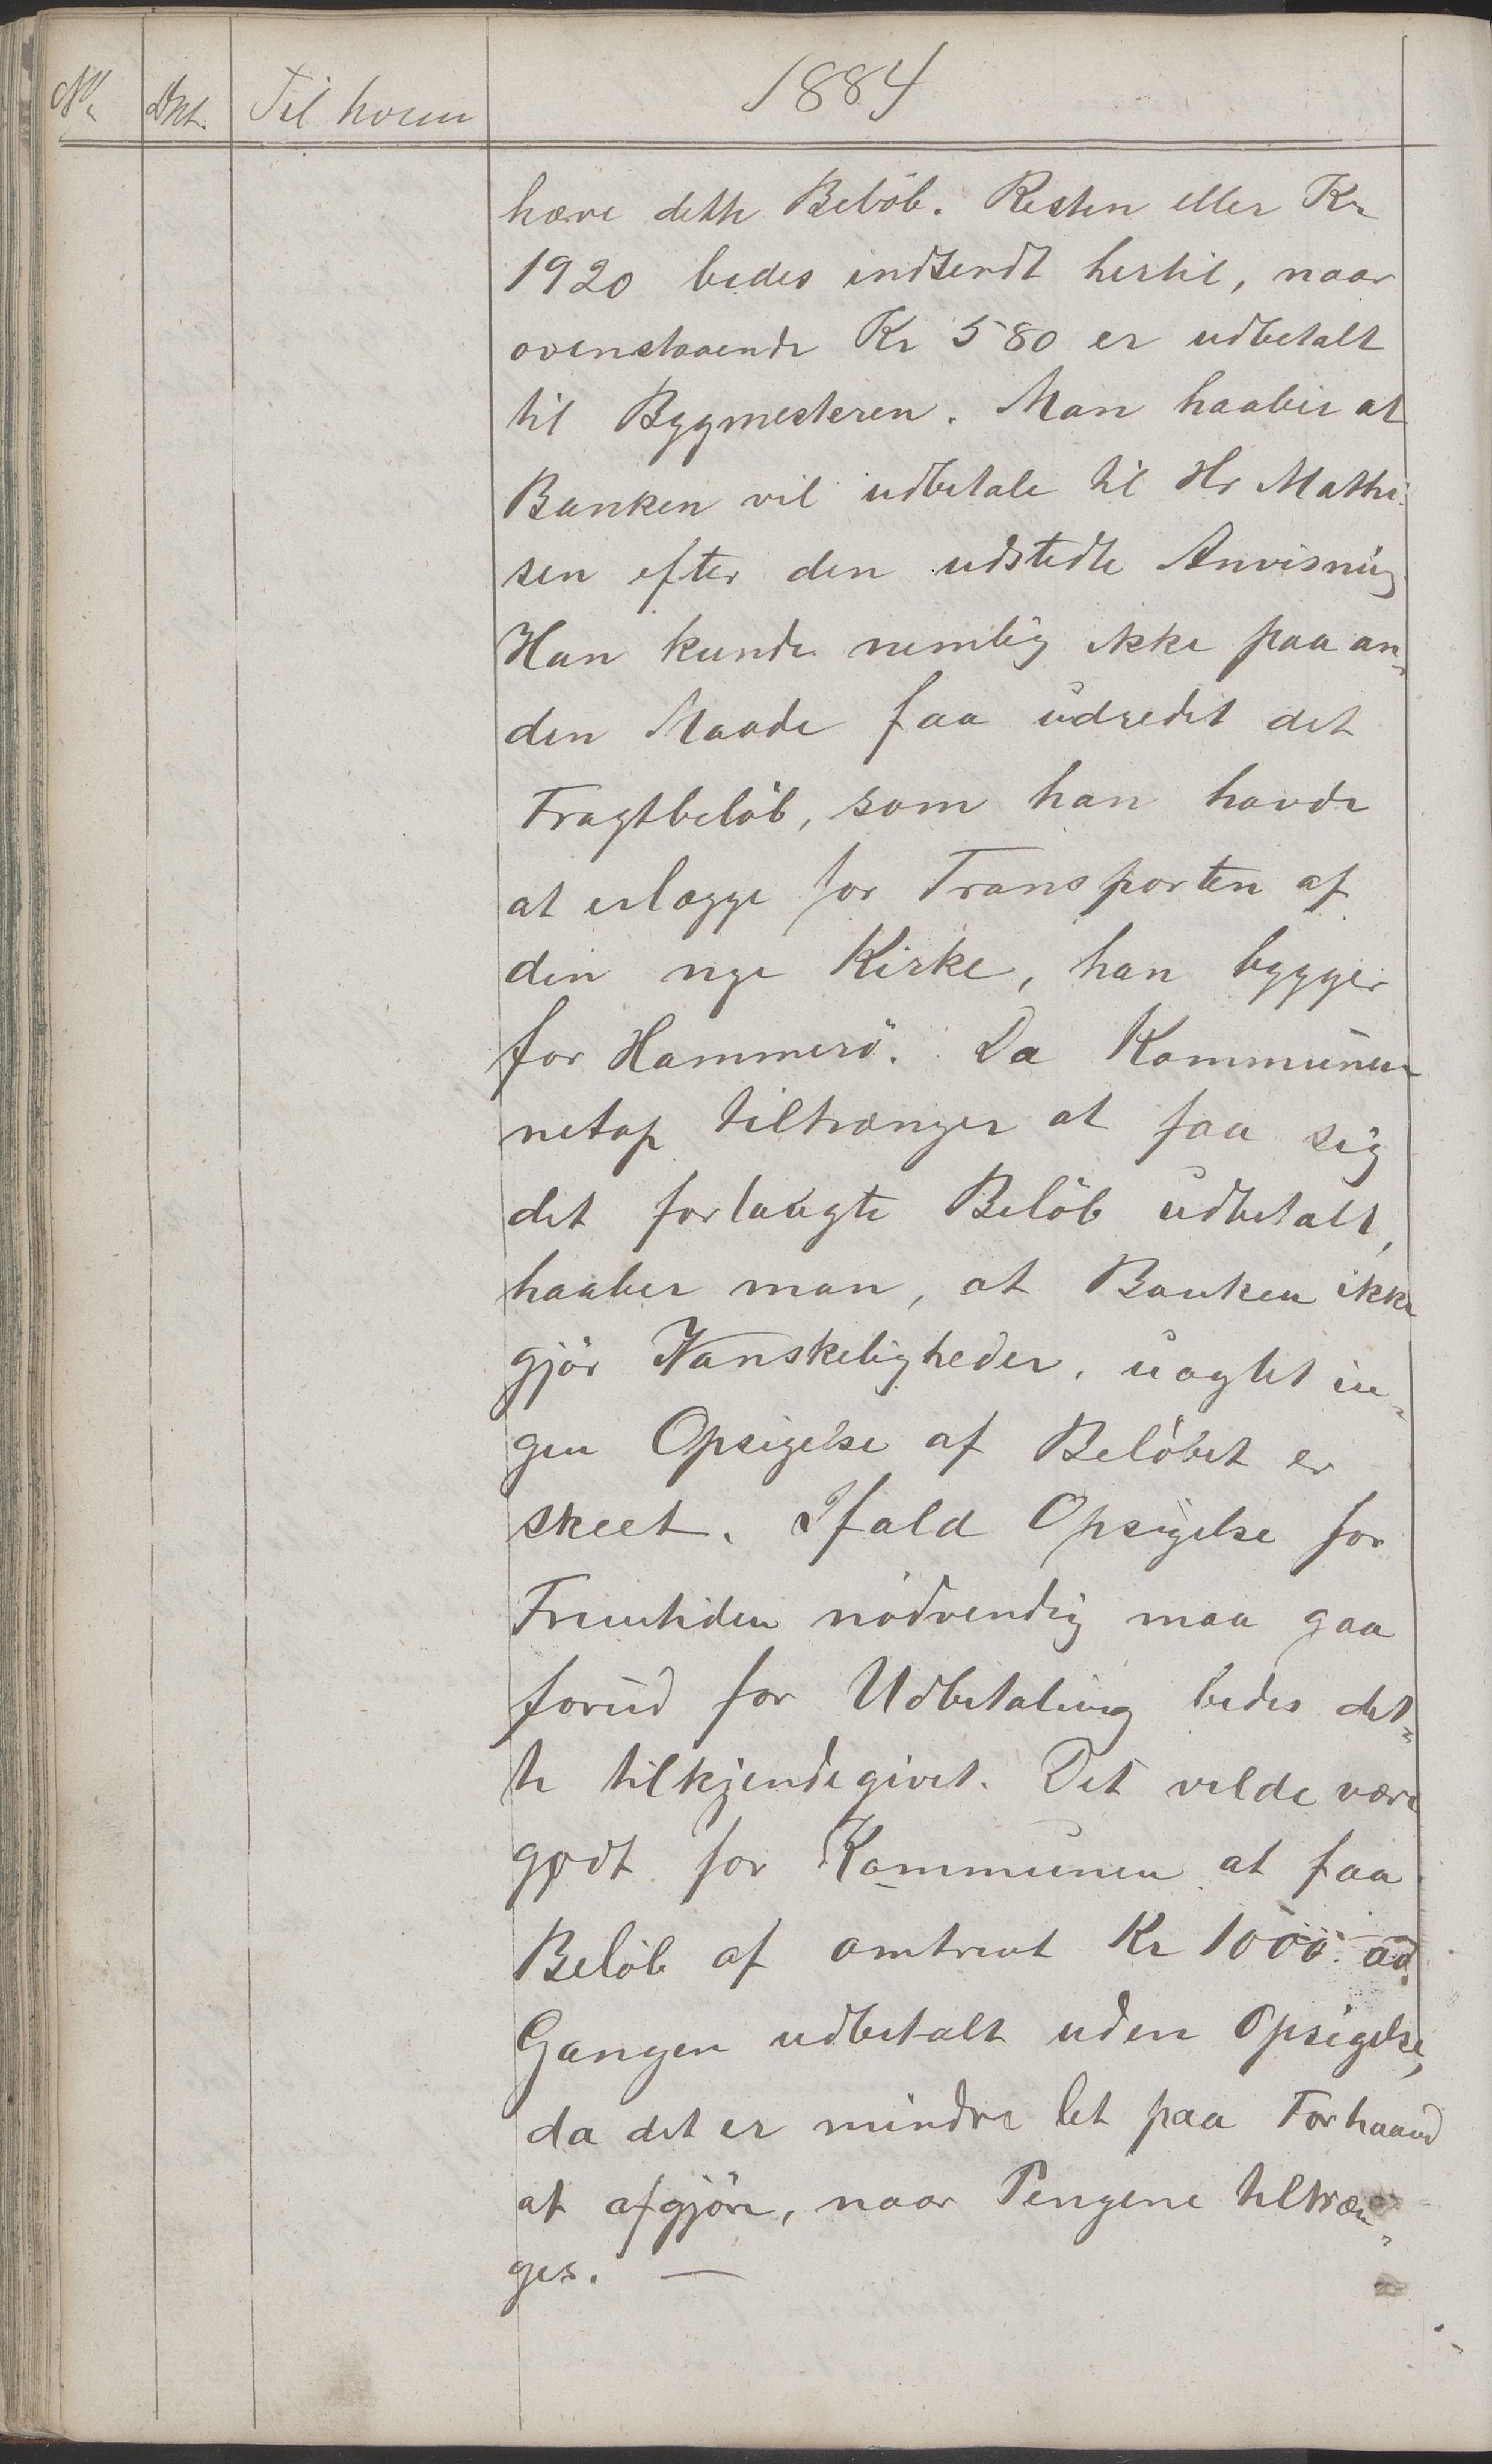 No Dat. Til hvem 1884
hæve dette Beløb. Resten eller Kr
1920 bedes indsendt hertil, naar
ovenstaaende Kr 580 er udbetalt
til Bygmesteren. Man haaber at
Banken vil udbetale til Hr Mathi-
sen efter den udstedte Anvisning
Han kunde nemlig ikke paa an-
den Maade faa udredet det
Fragtbeløb, som han havde
at erlægge for Transporten af
den nye Kirke, han bygger
for Hammerö. Da Kommunen
netop tiltrænger at faa sig
det forlangte Beløb udbetalt,
haaber man, at Banken ikke
gjör Vanskeligheder, uagtet in-
gen Opsigelse af Beløbet er
skeet. Ifald Opsigelse for
Fremtiden nödvendig maa gaa
forud for Udbetaling bedes det-
te tilkjendegivet. Det vilde være
godt for Kommunen at faa
Beløb af omtrent Kr 1000 ad
Gangen udbetalt uden Opsigelse,
da det er mindre let paa Forhaand
at afgjöre, naar Pengene tiltræn-
ges. —